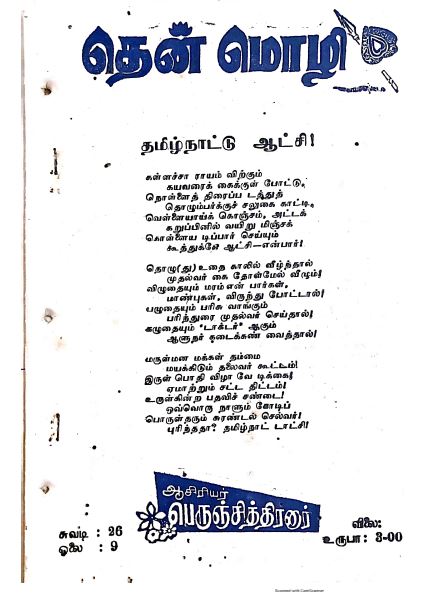 தென் மொழி
தமிழ்நாட்டு ஆட்சி!
கள்ளச்சா ராயம் விற்கும்
கயவரைக் கைக்குள் போட்டு,
நொள்ளைத் திரைப்ப டத்துத்
தொழும்பர்க்குச் சலுகை காட்டி,
வெள்ளையாய்க் கொஞ்சம், அட்டக்
கறுப்பினில் வயிறு மிஞ்சக்
கொள்ளைய டிப்பார் செய்யும்
கூத்துக்கே ஆட்சி—என்பார்!
தொழு(து)உதை காலில் வீழ்ந்தால்
முதல்வர் கை தோள்மேல் வீழும்!
விழுதையும் மரம் என் பார்கள்,
மாண்புகள், விருந்து போட்டால்!
பழுதையும் பரிசு வாங்கும்
பரிந்துரை முதல்வர் செய்தால்!
கழுதையும் "டாக்டர்" ஆகும்
ஆளுநர் கடைக்கண் வைத்தால்!
மருள்மன மக்கள் தம்மை
மயக்கிடும் தலைவர் கூட்டம்!
இருள் பொதி விழா வே டிக்கை!
ஏமாற்றும் சட்ட திட்டம்!
உருள்கின்ற பதவிச் சண்டை!
ஒவ்வொரு நாளும் கோடிப்
பொருள்தரும் சுரண்டல் செல்வர்!
புரிந்ததா? தமிழ்நாட் டாட்சி!
ஆசிரியர்
பெருஞ்சித்திரனார்
சுவடி : 26
ஓலை : 9
விலை:
உருபா: 3-00
Scanned with CamScanner